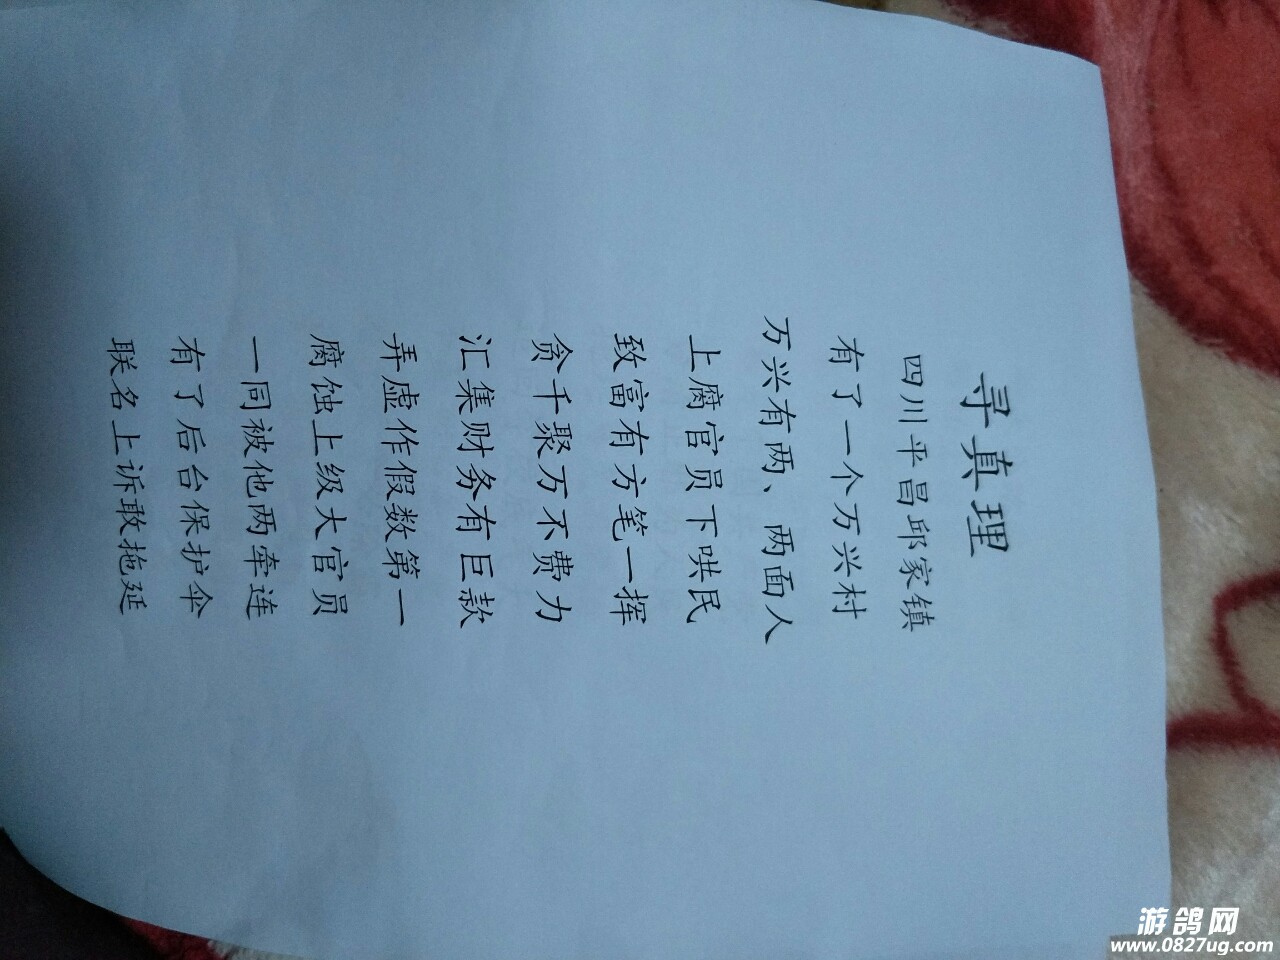 寻真理
四川平昌邱家镇
有了一个万兴村
万兴有两、两面人
上腐官员下哄民
致富有方笔一挥
贪千聚万不费力
汇集财务有巨款
弄虚作假数第一
腐蚀上级大官员
一同被他两牵连
有了后台保护伞
联名上诉敢拖延
游鸽网
www.0827ug.com